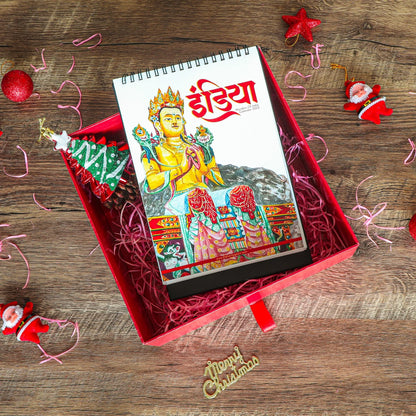 इंडिया
Merry
Christmas